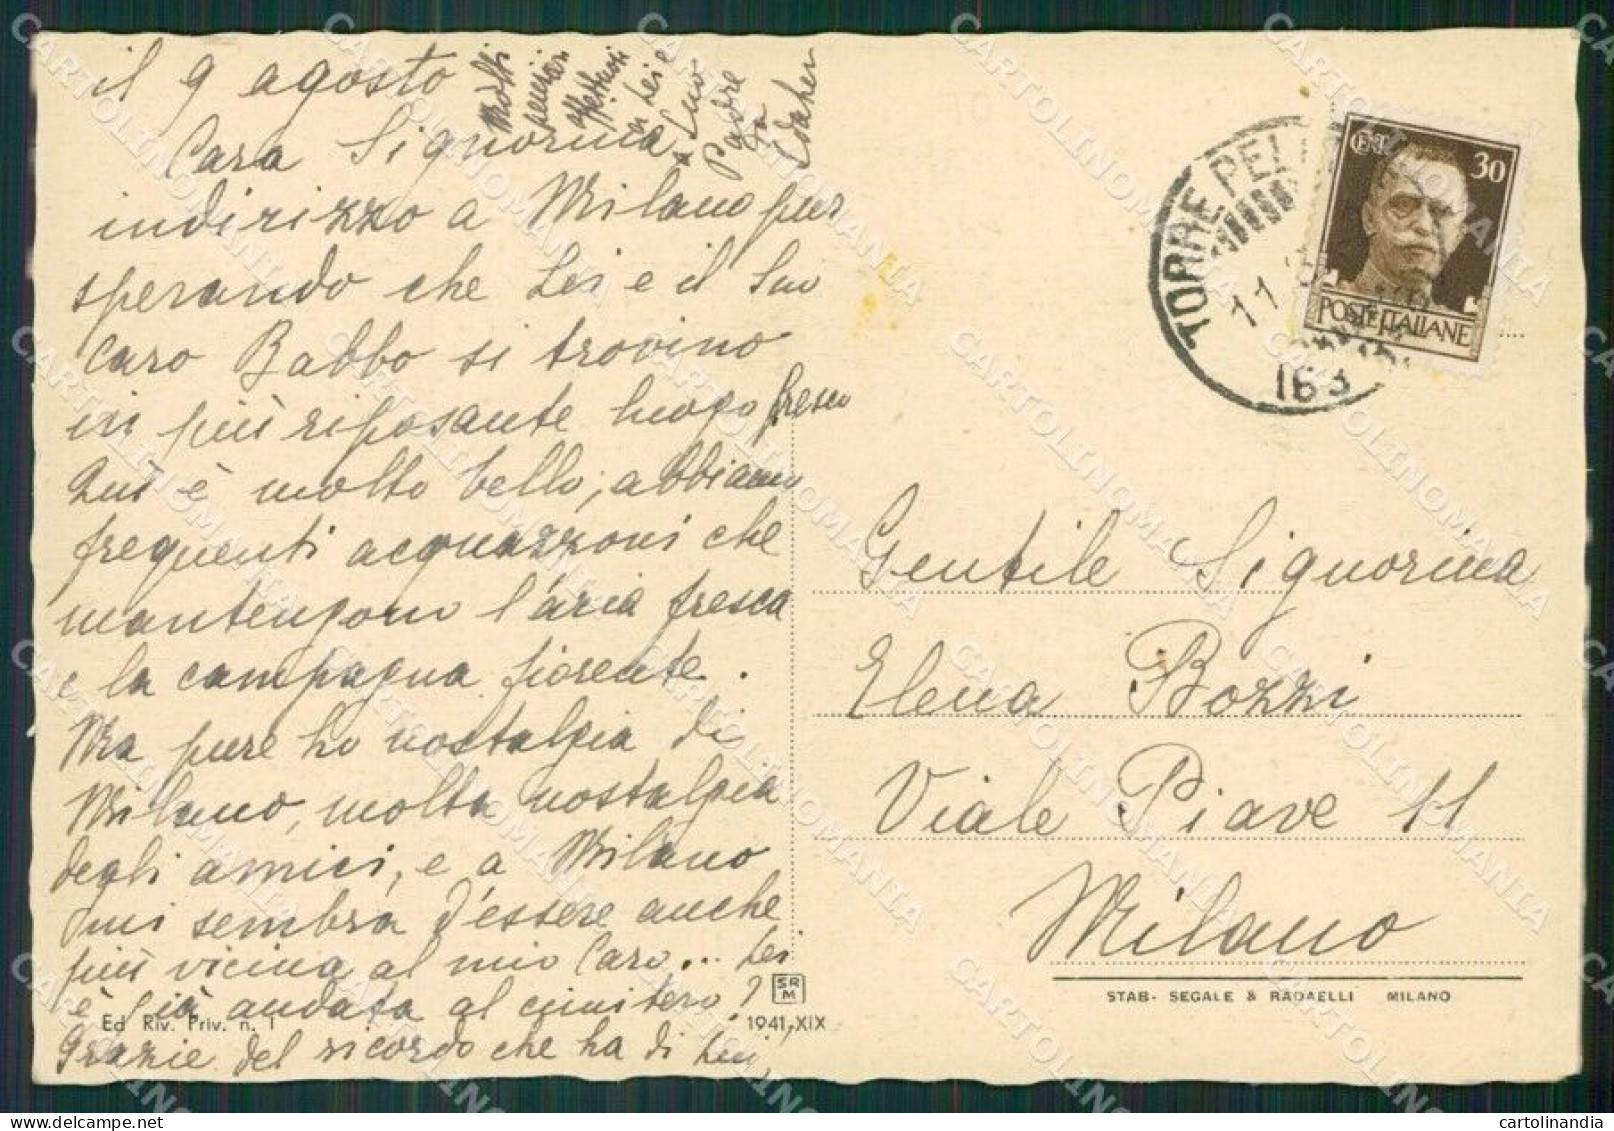 il 9 agosto
Cara Signorina
indirizzo a Milano pur
sperando che Lei e il Suo
caro Babbo si trovino
in più riposante luogo fresco
Qui è molto bello, abbiamo
frequenti acquazzoni che
mantengono l'aria fresca
e la campagna fiorente.
Ma pure ho nostalgia di
Milano, molta nostalgia
degli amici, e a Milano
mi sembra d'essere anche
più vicina al mio Caro... Lei
è già andata al cimitero?
Grazie del ricordo che ha di Lui,
Molti
affettuosi
a Lei e
a Suo
Padre
da
Ed Riv. Priv. n. 1
SRM
1941, XIX
TORRE PEL
11
163
CENT. 30
POSTE ITALIANE
Gentile Signorina
Elena Bozzi
Viale Piave 11
Milano
STAB. SEGALE & RADAELLI MILANO
CARTOLINOMANIA
cartolinandia